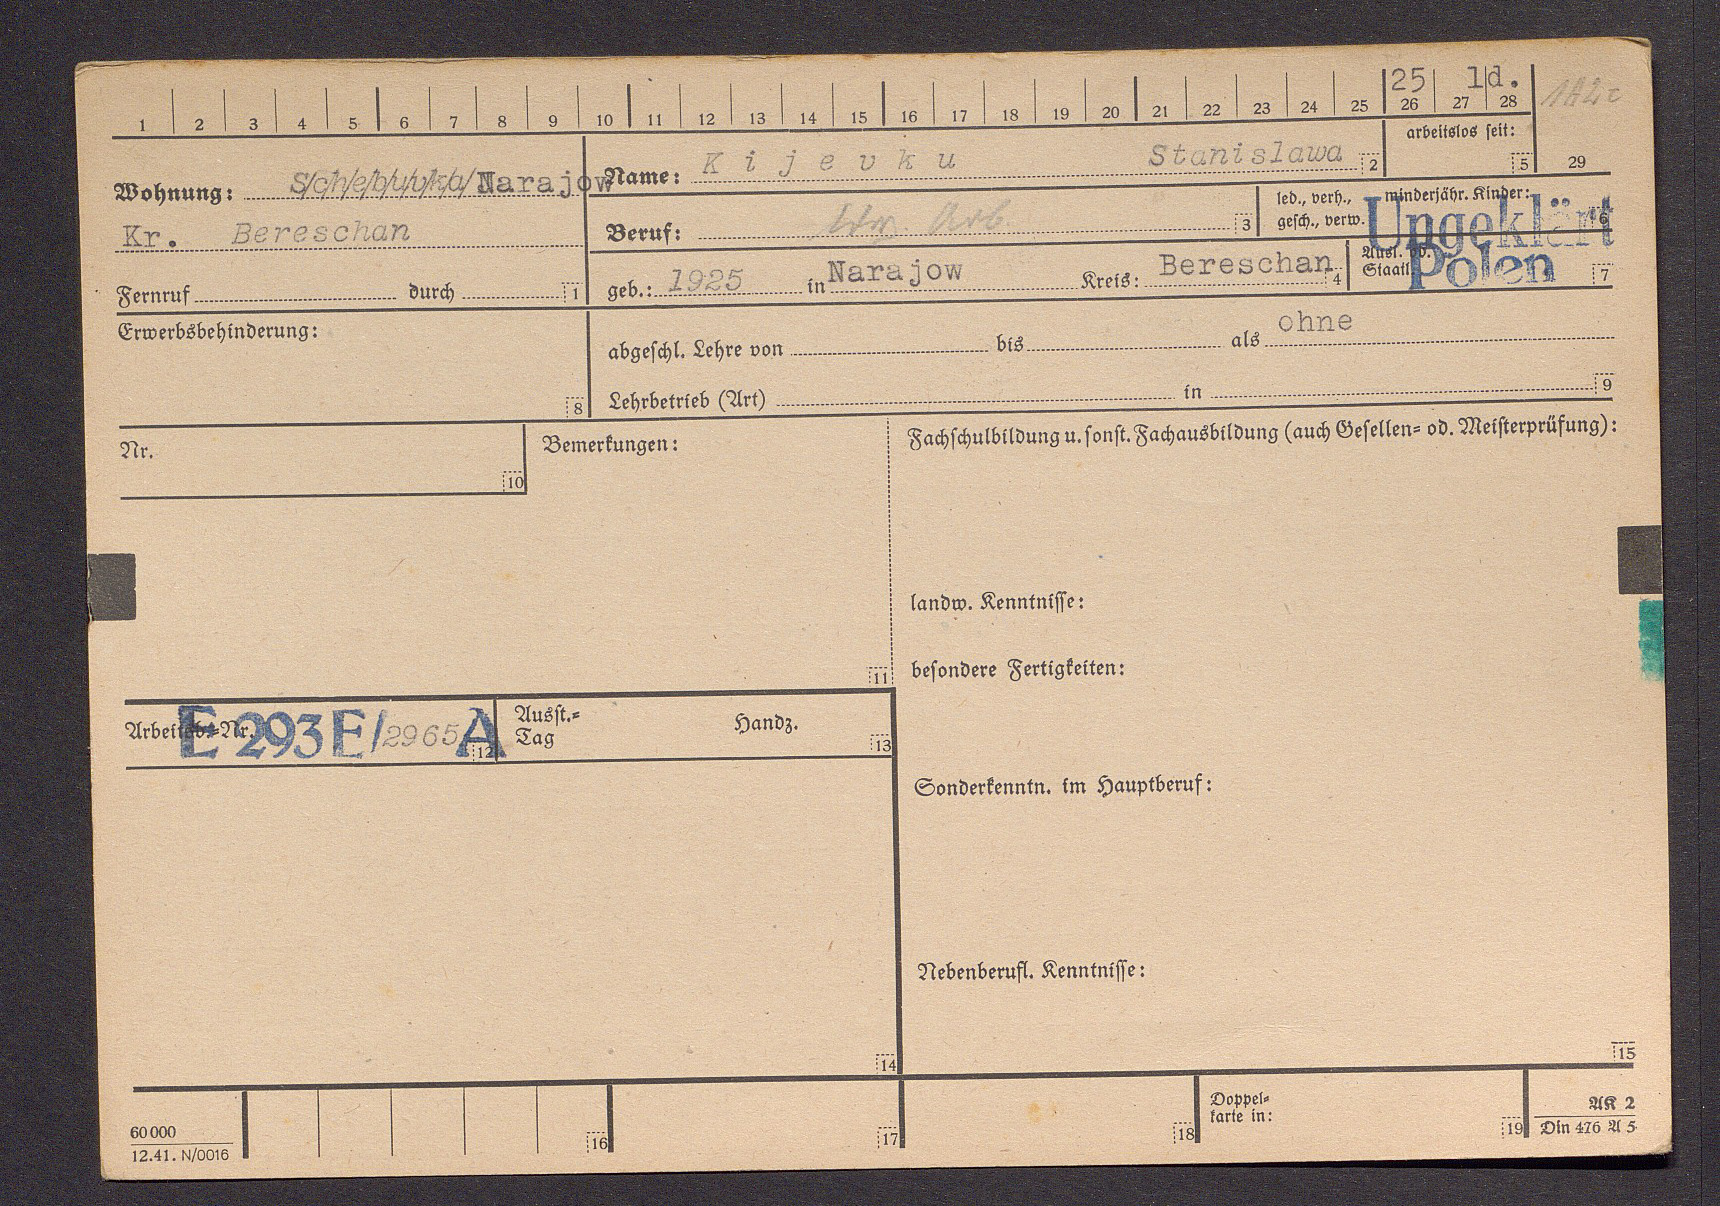 25 1d.
1 2 3 4 5 6 7 8 9 10 11 12 13 14 15 16 17 18 19 20 21 22 23 24 25 26 27 28 29
Wohnung: S/c/h/e/b/u/v/k/a/ Narajow
Kr. Bereschan
Fernruf durch 1
Name: Kijevku Stanislawa 2
arbeitslos seit: 5
Beruf: Arb. 3
led., verh., gesch., verw.
minderjähr. Kinder: 6
Ungeklärt
geb.: 1925 in Narajow Kreis: Bereschan 4
Ausl. od. Staatl. 7
Polen
Erwerbsbehinderung: 8
abgeschl. Lehre von bis als ohne
Lehrbetrieb (Art) in 9
Nr. 10
Bemerkungen: 11
Fachschulbildung u. sonst. Fachausbildung (auch Gesellen= od. Meisterprüfung):
landw. Kenntnisse:
besondere Fertigkeiten:
Arbeitsb.=Nr. E 293 E/2965 A 12
Ausst.=
Tag
Handz. 13
Sonderkenntn. im Hauptberuf:
Nebenberufl. Kenntnisse:
14
15
60000
12.41. N/0016
16
17
18
Doppel=
karte in: 19
AK 2
Din 476 A 5